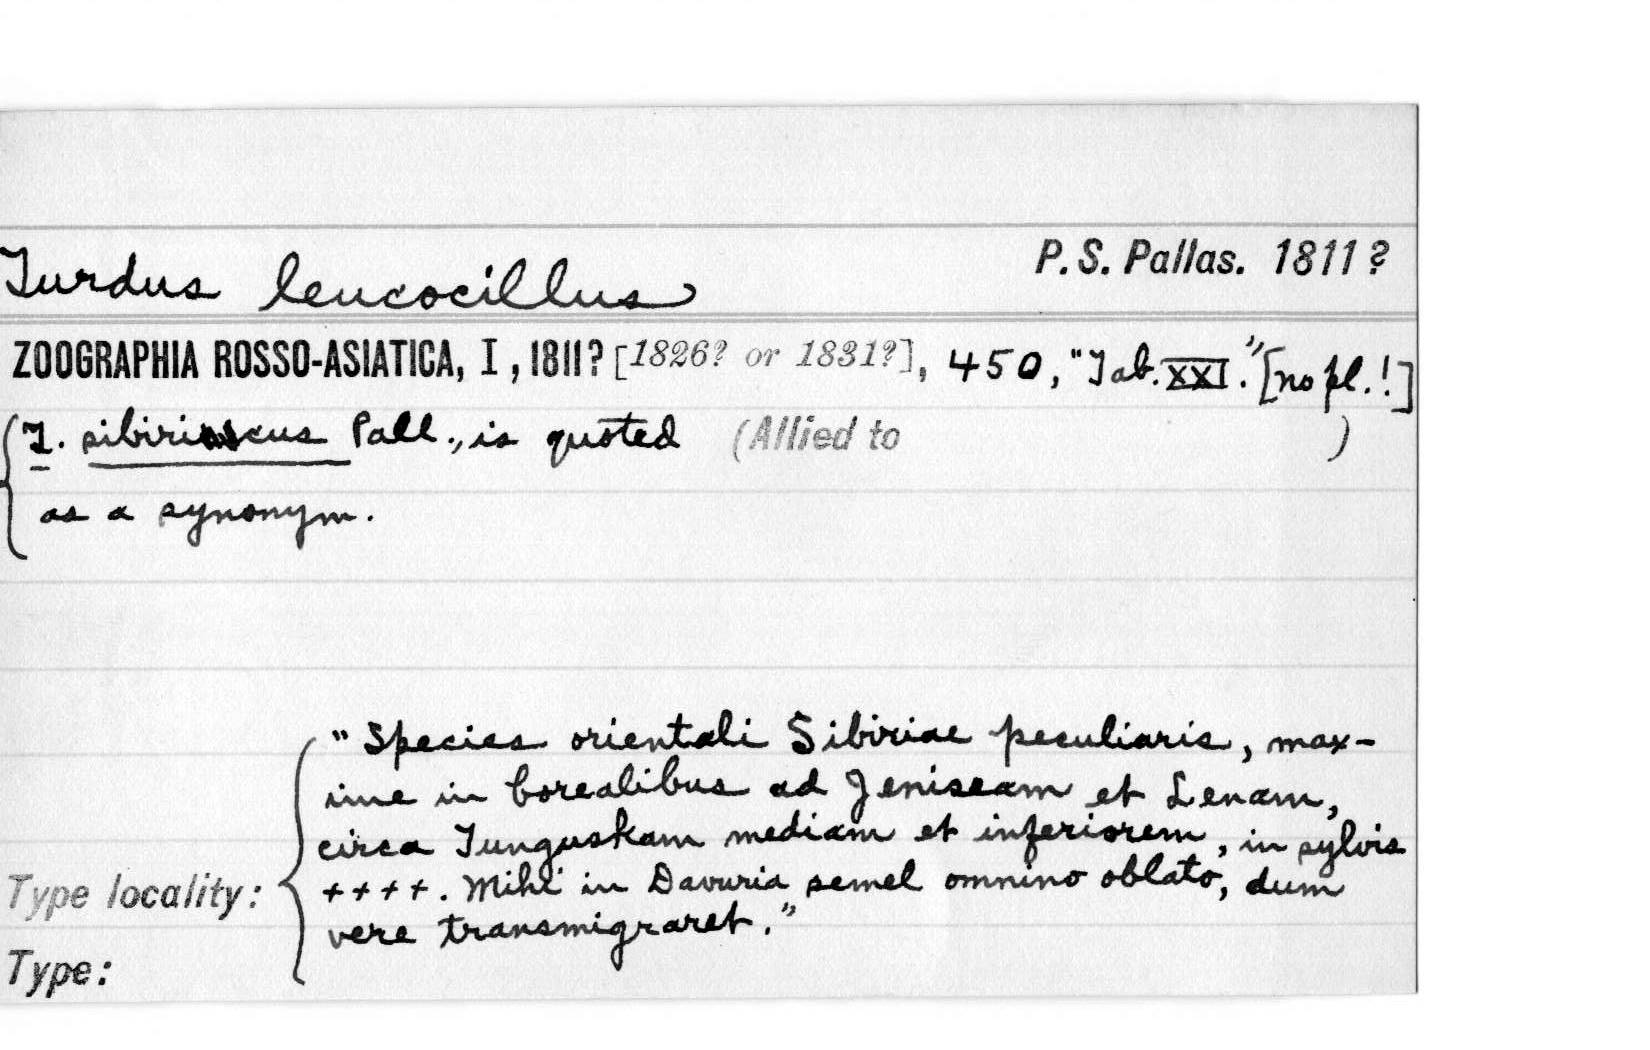 Turdus leucocillus
P. S. Pallas. 1811?
ZOOGRAPHIA ROSSO-ASIATICA, I, 1811? [1826? or 1831?], 450, "Tab. XXI." [no pl.!]
T. sibiricus Pall., is quoted (Allied to )
as a synonym.
"Species orientali Sibiriae peculiaris, max-
ime in borealibus ad Jeniseam et Lenam,
circa Tunguskam mediam et inferiorem, in sylvis
Type locality: ++++. Mihi in Davuria semel omnino oblato, dum
vere transmigraret."
Type: